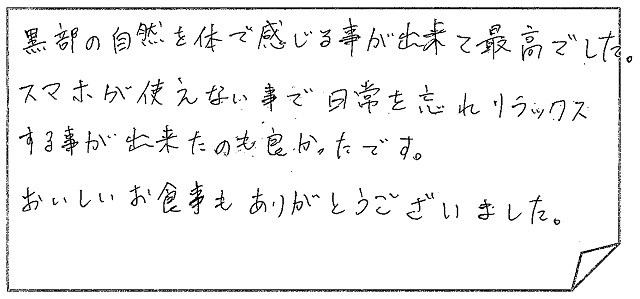 黒部の自然を体で感じる事が出来て最高でした。
スマホが使えない事で日常を忘れリラックス
する事が出来たのも良かったです。
おいしいお食事もありがとうございました。